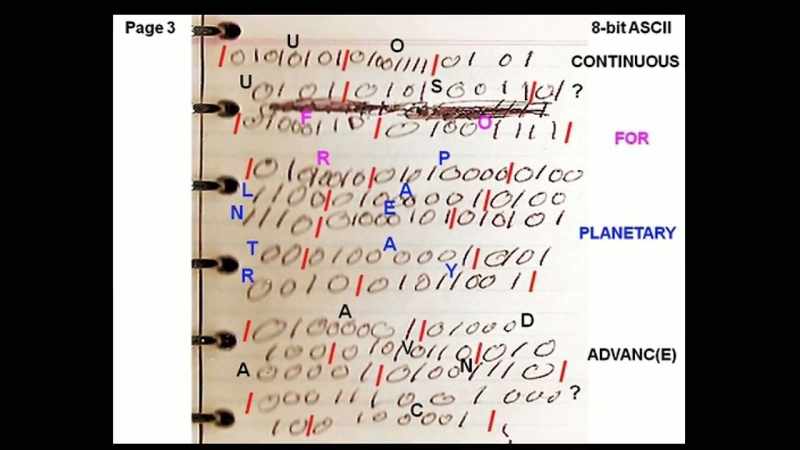 Page 3
8-bit ASCII
U O
|01010101|01001111|01 01
CONTINUOUS
U S
0101|01010011|01 ?
F O
|01000110|01001111|
FOR
R P
|01010010|01010000|0100
L A
1100|01000001|0100
N E
1110|01000101|010101
PLANETARY
T A
00|01000001|0101
R Y
0010|01011001|
A D
|01000001|01000
V
100|01010110|010
ADVANC(E)
A N
00001|01001110|
?
C